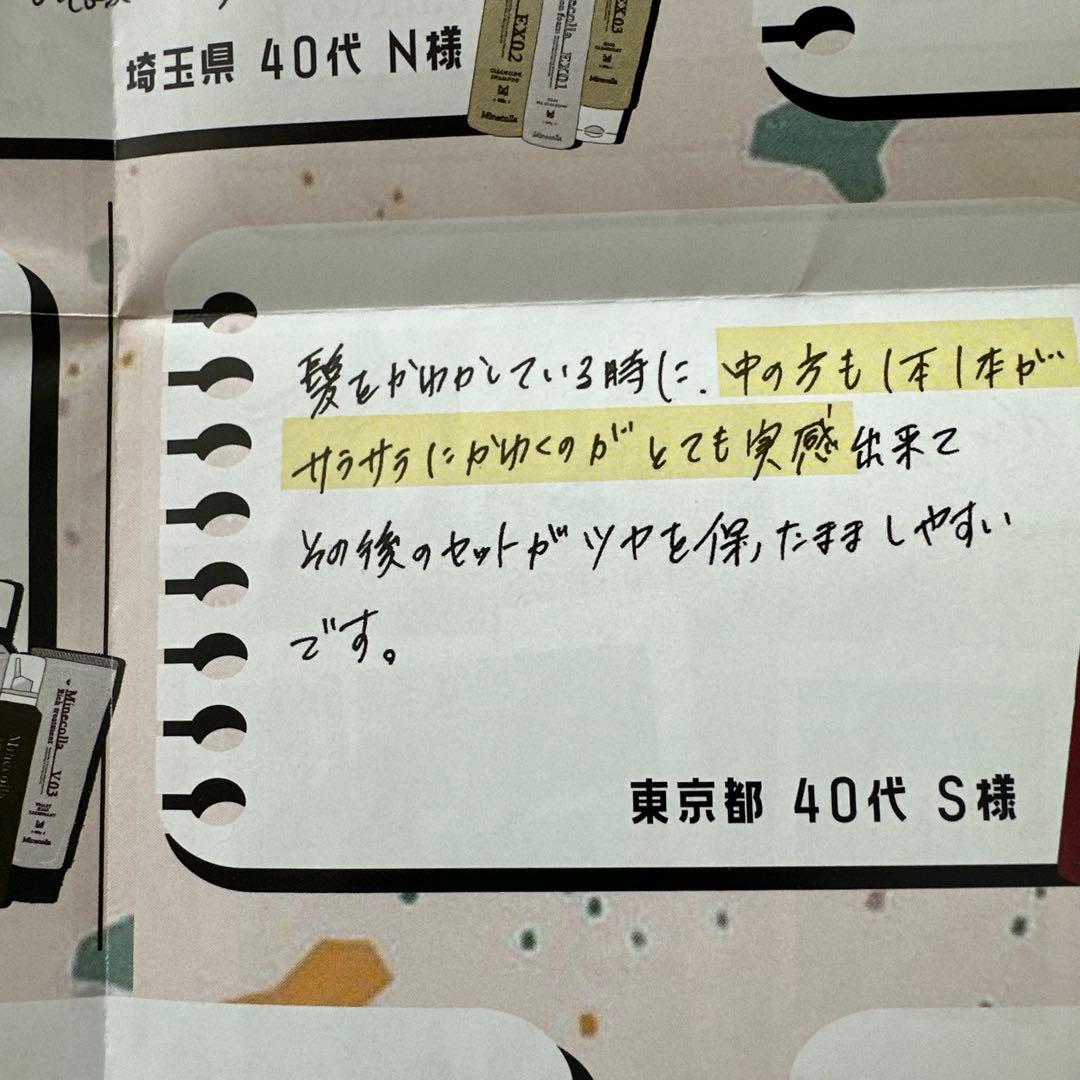 埼玉県 40代 N様
EX0.2
CLEANSING
SHAMPOO
Minecolla
Minecolla EX0.1
Minecolla
EX0.3
Minecolla
髪をかわかしている時に、中の方も1本1本が
サラサラにかわくのがとても実感出来て
その後のセットがツヤを保ったまましやすい
です。
東京都 40代 S様
Minecolla V.03
Rich treatment
Minecolla
Minecolla